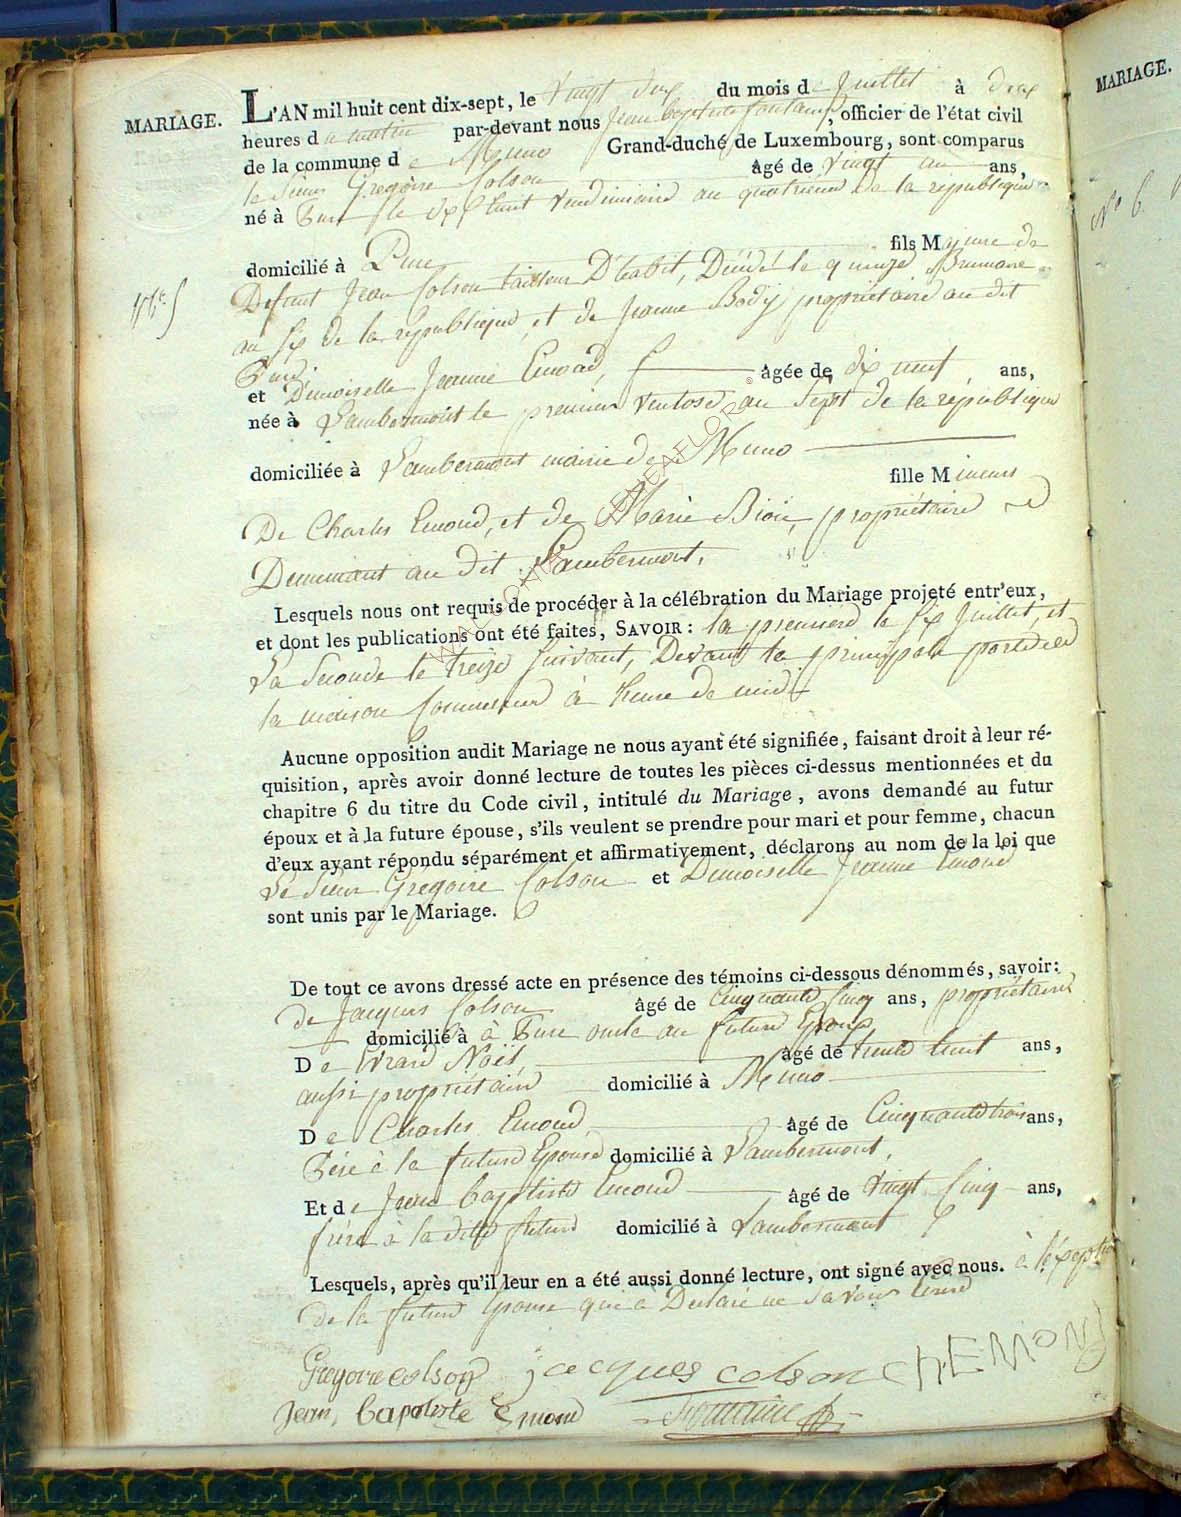 MARIAGE.
L'AN mil huit cent dix-sept, le vingt deux du mois de Juillet à dix
heures du matin par-devant nous Jean baptiste fontaine, officier de l'état civil
de la commune de Muno Grand-duché de Luxembourg, sont comparus
le Sieur Grégoire Colson âgé de vingt un ans,
né à Pure le dix huit Vendimiaire an quatrieme de la republique
domicilié à Pure fils Majeure de
Defunt Jean Colson tailleur D'habit, Décédé le quinze Brumaire
an six de la republique, et de Jeanne Body propriétaire au dit
Pure.
et Demoiselle Jeanne Emond, âgée de dix neuf ans,
née à Lambermont le premier Ventose an Sept de la republique
domiciliée à Lambermont mairie de Muno
fille Mineure
De Charles Emond, et de Marie Bioie, propriétaire
Demeurant au dit Lambermont.
Lesquels nous ont requis de procéder à la célébration du Mariage projeté entr'eux,
et dont les publications ont été faites, SAVOIR: la premiere le six Juillet, et
La Seconde le treize Suivant, Devant la principale porte de
la maison Commune à heure de midi
Aucune opposition audit Mariage ne nous ayant été signifiée, faisant droit à leur ré-
quisition, après avoir donné lecture de toutes les pièces ci-dessus mentionnées et du
chapitre 6 du titre du Code civil, intitulé du Mariage, avons demandé au futur
époux et à la future épouse, s'ils veulent se prendre pour mari et pour femme, chacun
d'eux ayant répondu séparément et affirmativement, déclarons au nom de la loi que
Le Sieur Grégoire Colson et Demoiselle Jeanne Emond
sont unis par le Mariage.
De tout ce avons dressé acte en présence des témoins ci-dessous dénommés, savoir:
de Jacques Colson âgé de Cinquante Cinq ans, propriétaire
domicilié à à Pure oncle au futur Epoux
De Evrard Noël, âgé de trente huit ans,
aussi propriétaire domicilié à Muno
De Charles Emond âgé de Cinquante trois ans,
Père à la future Epouse domicilié à Lambermont,
Et de Jean baptiste Emond âgé de vingt Cinq ans,
frère à la dite future domicilié à Lambermont
Lesquels, après qu'il leur en a été aussi donné lecture, ont signé avec nous. à l'exception
de la future Epouse qui a Declaré ne Savoir
Gregoire colson jacques colson CHEMOND
Jean, baptiste Emond Fontaine
MARIAGE.
N° 6.